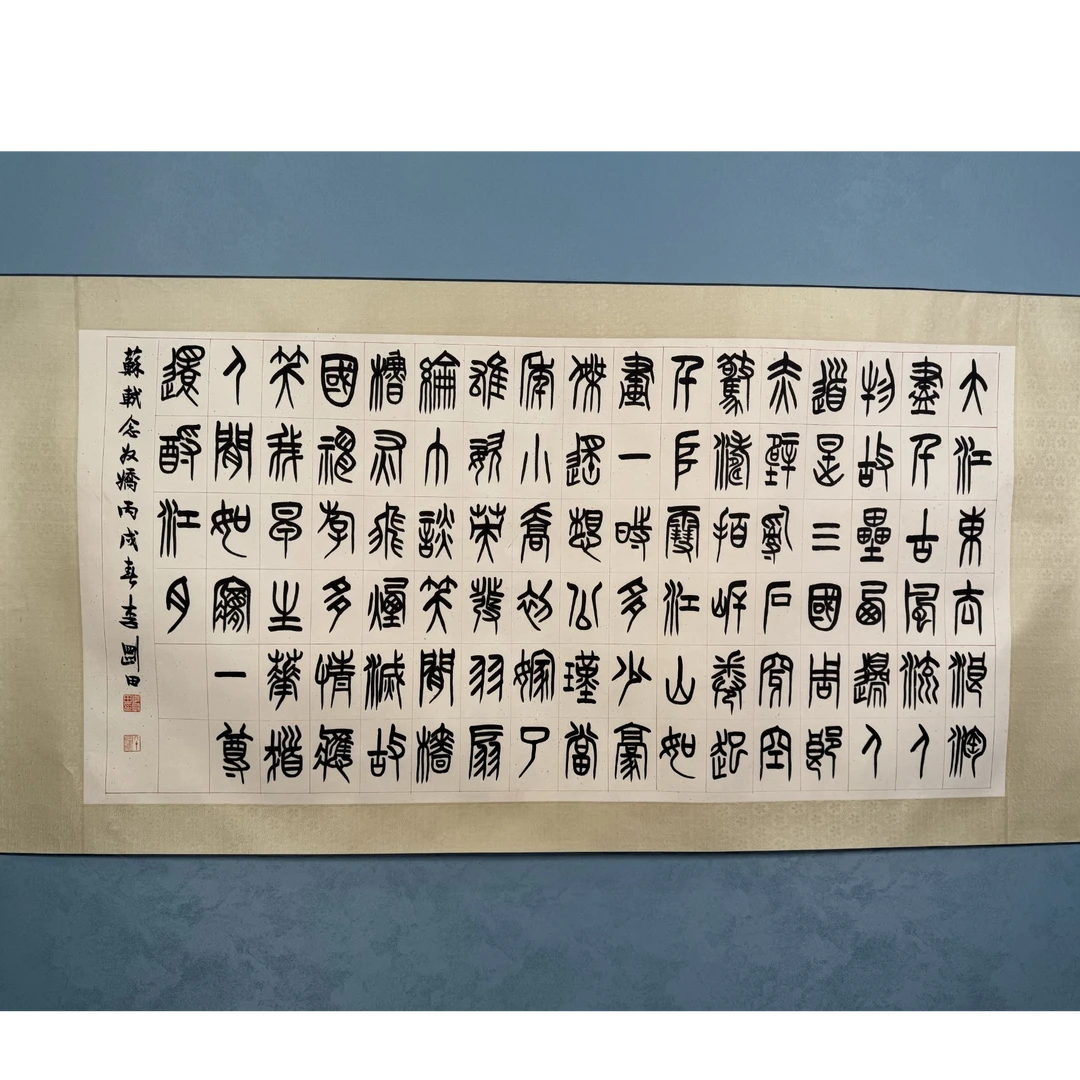 大江東去浪淘
盡千古風流人
物故壘西邊人
道是三國周郎
赤壁亂石穿空
驚濤拍岸卷起
千堆雪江山如
畫一時多少豪
傑遙想公瑾當
年小喬初嫁了
雄姿英發羽扇
綸巾談笑間檣
櫓灰飛煙滅故
國神游多情應
笑我早生華髮
人間如夢一尊
還酹江月
蘇軾念奴嬌丙戌春李剛田